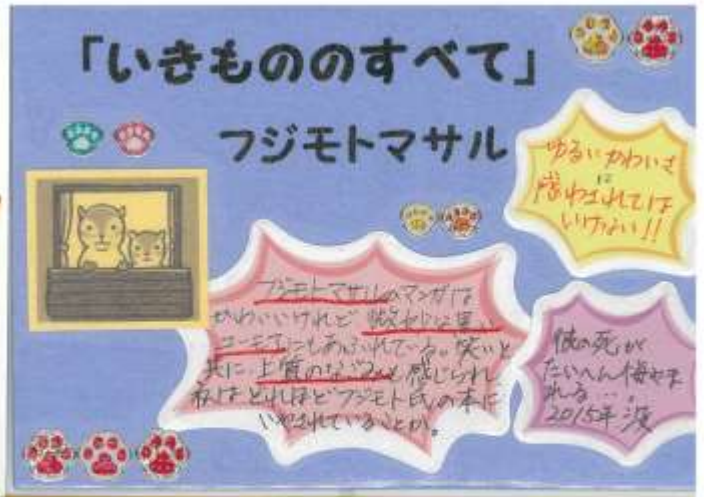 「いきもののすべて」
フジモトマサル
ゆるいかわいさ
に
惑わされては
いけない!!
フジモトマサルのマンガは
かわいいけれど 微妙な黒い
ユーモアにもあふれている。笑いと
共に、上質のなごみも感じられ、
私はどれほどフジモト氏の本に
いやされていることか。
彼の死が
たいへん悔やま
れる...。
2015年没